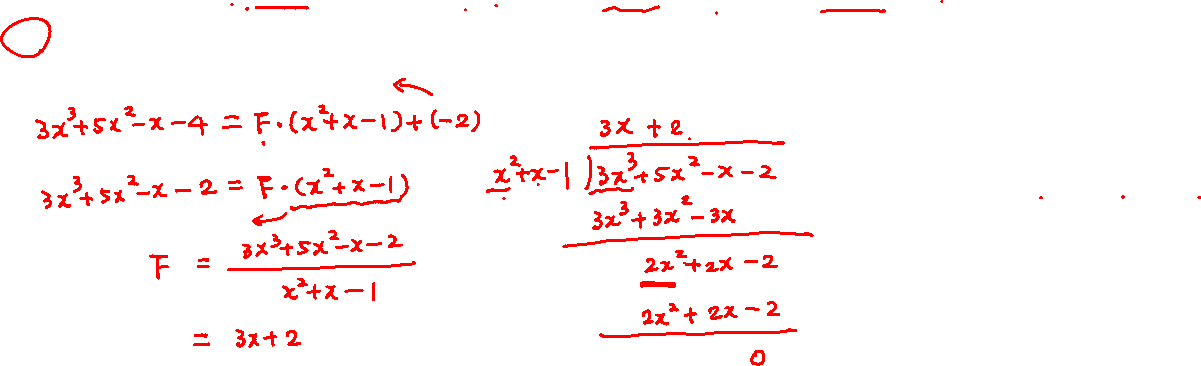 3x³+5x²-x-4 = F·(x²+x-1)+(-2)
3x³+5x²-x-2 = F·(x²+x-1)
F = 3x³+5x²-x-2
x²+x-1
= 3x+2
3x+2
x²+x-1)3x³+5x²-x-2
3x³+3x²-3x
2x²+2x-2
2x²+2x-2
0